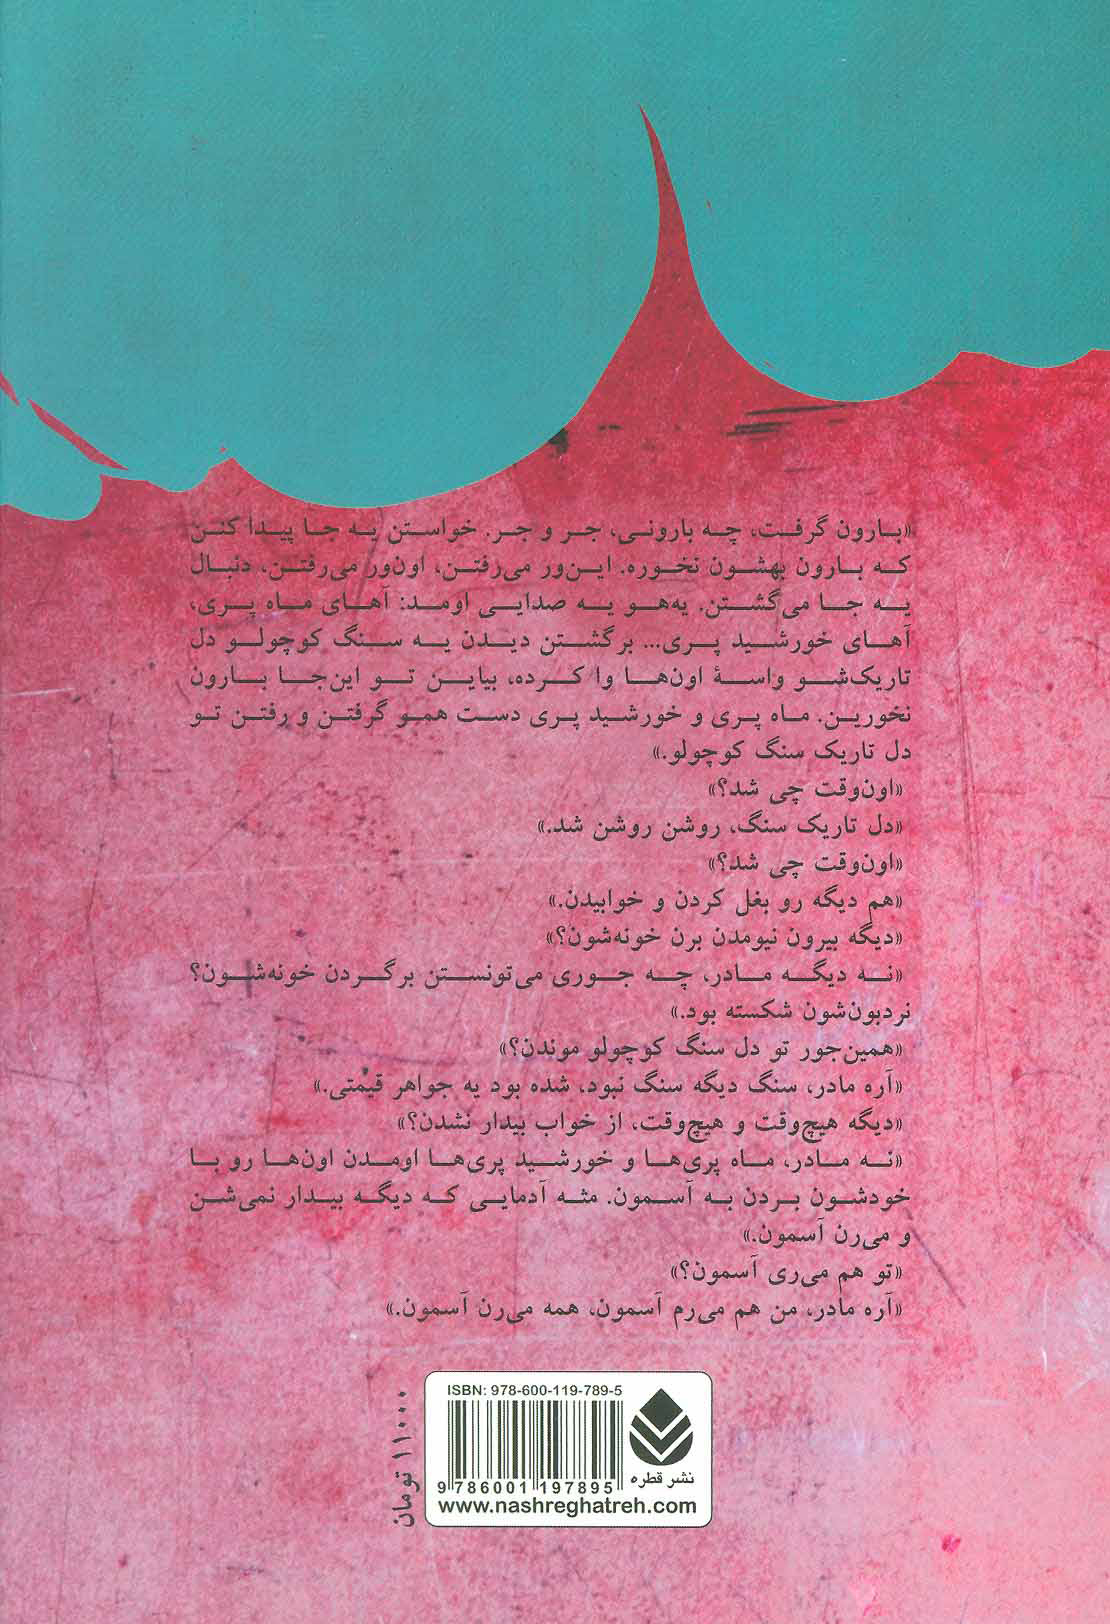 «بارون گرفت، چه بارونی، جر و جر. خواستن یه جا پیدا کنن
که بارون بهشون نخوره. این‌ور می‌رفتن، اون‌ور می‌رفتن، دنبال
یه جا می‌گشتن. یه‌هو یه صدایی اومد: آهای ماه پری،
آهای خورشید پری... برگشتن دیدن یه سنگ کوچولو دل
تاریک‌شو واسهٔ اون‌ها وا کرده، بیاین تو این‌جا بارون
نخورین. ماه پری و خورشید پری دست همو گرفتن و رفتن تو
دل تاریک سنگ کوچولو.»
«اون‌وقت چی شد؟»
«دل تاریک سنگ، روشن روشن شد.»
«اون‌وقت چی شد؟»
«هم دیگه رو بغل کردن و خوابیدن.»
«دیگه بیرون نیومدن برن خونه‌شون؟»
«نه دیگه مادر، چه جوری می‌تونستن برگردن خونه‌شون؟
نردبون‌شون شکسته بود.»
«همین‌جور تو دل سنگ کوچولو موندن؟»
«آره مادر، سنگ دیگه سنگ نبود، شده بود یه جواهر قیمتی.»
«دیگه هیچ‌وقت و هیچ‌وقت، از خواب بیدار نشدن؟»
«نه مادر، ماه پری‌ها و خورشید پری‌ها اومدن اون‌ها رو با
خودشون بردن به آسمون. مثه آدمایی که دیگه بیدار نمی‌شن
و می‌رن آسمون.»
«تو هم می‌ری آسمون؟»
«آره مادر، من هم می‌رم آسمون، همه می‌رن آسمون.»
۱۱۰۰۰ تومان
ISBN: 978-600-119-789-5
نشر قطره
9 786001 197895
www.nashreghatreh.com